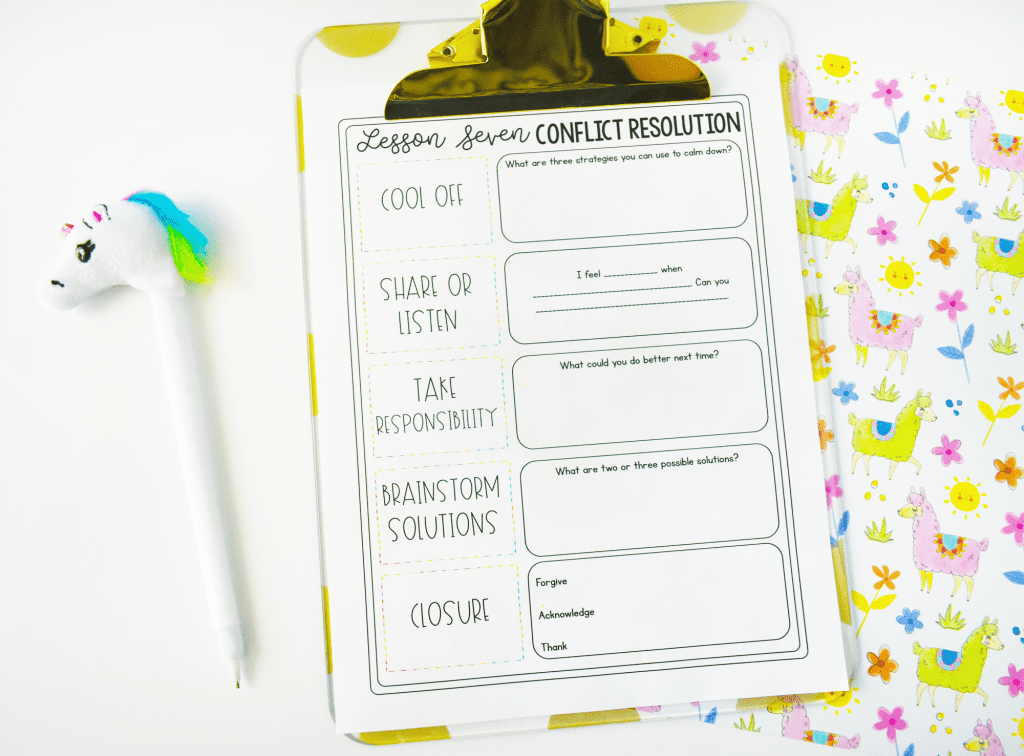 Lesson Seven CONFLICT RESOLUTION
COOL OFF
What are three strategies you can use to calm down?
SHARE OR
LISTEN
I feel ____________ when
___________________________________ Can you
___________________________________________
TAKE
RESPONSIBILITY
What could you do better next time?
BRAINSTORM
SOLUTIONS
What are two or three possible solutions?
CLOSURE
Forgive
Acknowledge
Thank